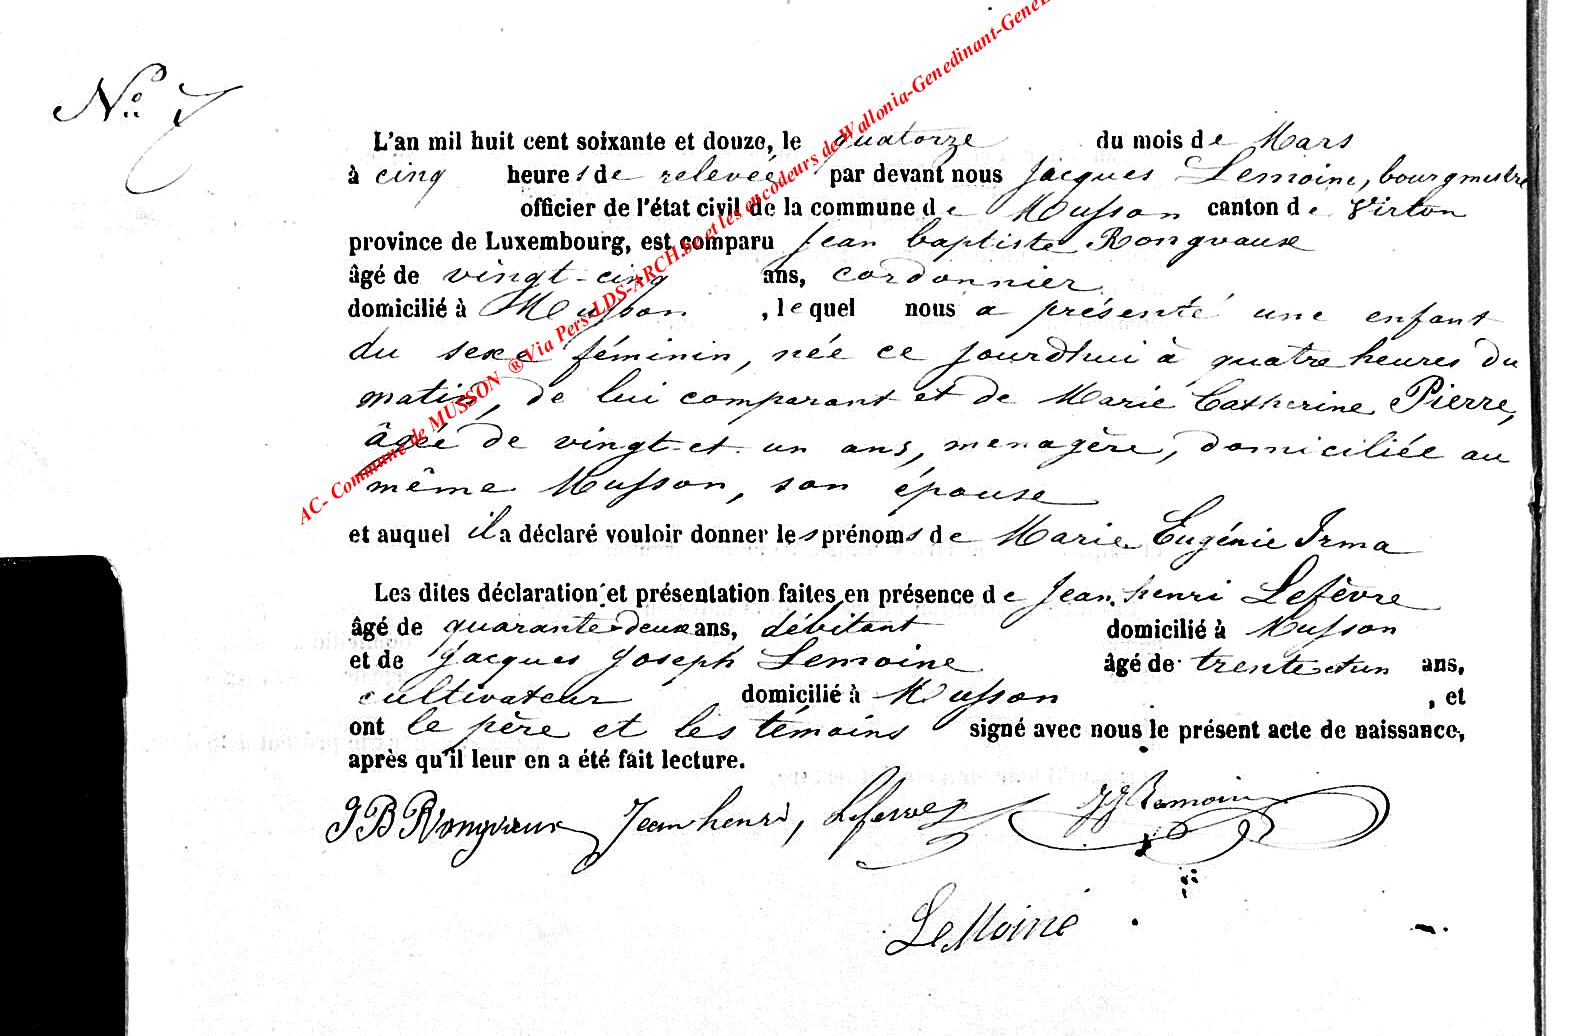 N° 7
L'an mil huit cent soixante et douze, le quatorze du mois de Mars
à cinq heures de relevée par devant nous Jacques Lemoine, bourgmestre
officier de l'état civil de la commune de Musson canton de Virton
province de Luxembourg, est comparu Jean baptiste Rongvaux
âgé de vingt-cinq ans, cordonnier
domicilié à Musson, lequel nous a présenté une enfant
du sexe féminin, née ce jourd'hui à quatre heures du
matin, de lui comparant et de Marie Catherine Pierre,
âgée de vingt-et-un ans, menagère, domiciliée au
même Musson, son épouse
et auquel il a déclaré vouloir donner les prénoms de Marie Eugénie Irma
Les dites déclaration et présentation faites en présence de Jean henri Lefèvre
âgé de quarante-deux ans, débitant domicilié à Musson
et de Jacques Joseph Lemoine âgé de trente et un ans,
cultivateur domicilié à Musson, et
ont le père et les témoins signé avec nous le présent acte de naissance,
après qu'il leur en a été fait lecture.
JB Rongvaux Jean henri, Lefevre JJ Lemoine
LeMoine
AC- Commune de MUSSON ® Via Pers-LDS-ARCH.be et les encodeurs de Wallonia-Genedinant-GeneL